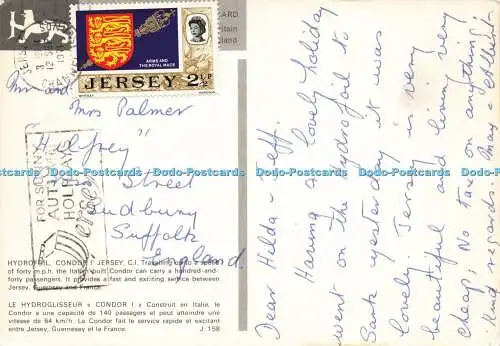 CARD
Britain
England
ARMS AND
THE ROYAL MACE
JERSEY 2½P
Mr and
Mrs Palmer
"Hulfrey"
Street
Sudbury
Suffolk
England
FOR SUNNY
AUTUMN
HOLIDAYS
Jersey
HYDROFOIL, CONDOR I JERSEY, C.I. Travelling
of forty m.p.h. the Italian built Condor can carry a hundred-and-
forty passengers. It provides a fast and exciting service between
Jersey, Guernsey and France.
LE HYDROGLISSEUR « CONDOR I » Construit en Italie, le
Condor a une capacité de 140 passagers et peut atteindre une
vitesse de 64 km/h. Le Condor fait le service rapide et excitant
entre Jersey, Guernesey et la France.
J 158
Dear Helda & Jeff.
Having a lovely holiday
went on the Hydrofoil to
Sark yesterday it was
lovely. Jersey is very
beautiful and living very
cheap, No tax on anything!
Kind regards
Dodo-Postcards Dodo-Postcards Dodo-Postcards Dodo-Postcards Dodo-Postcards